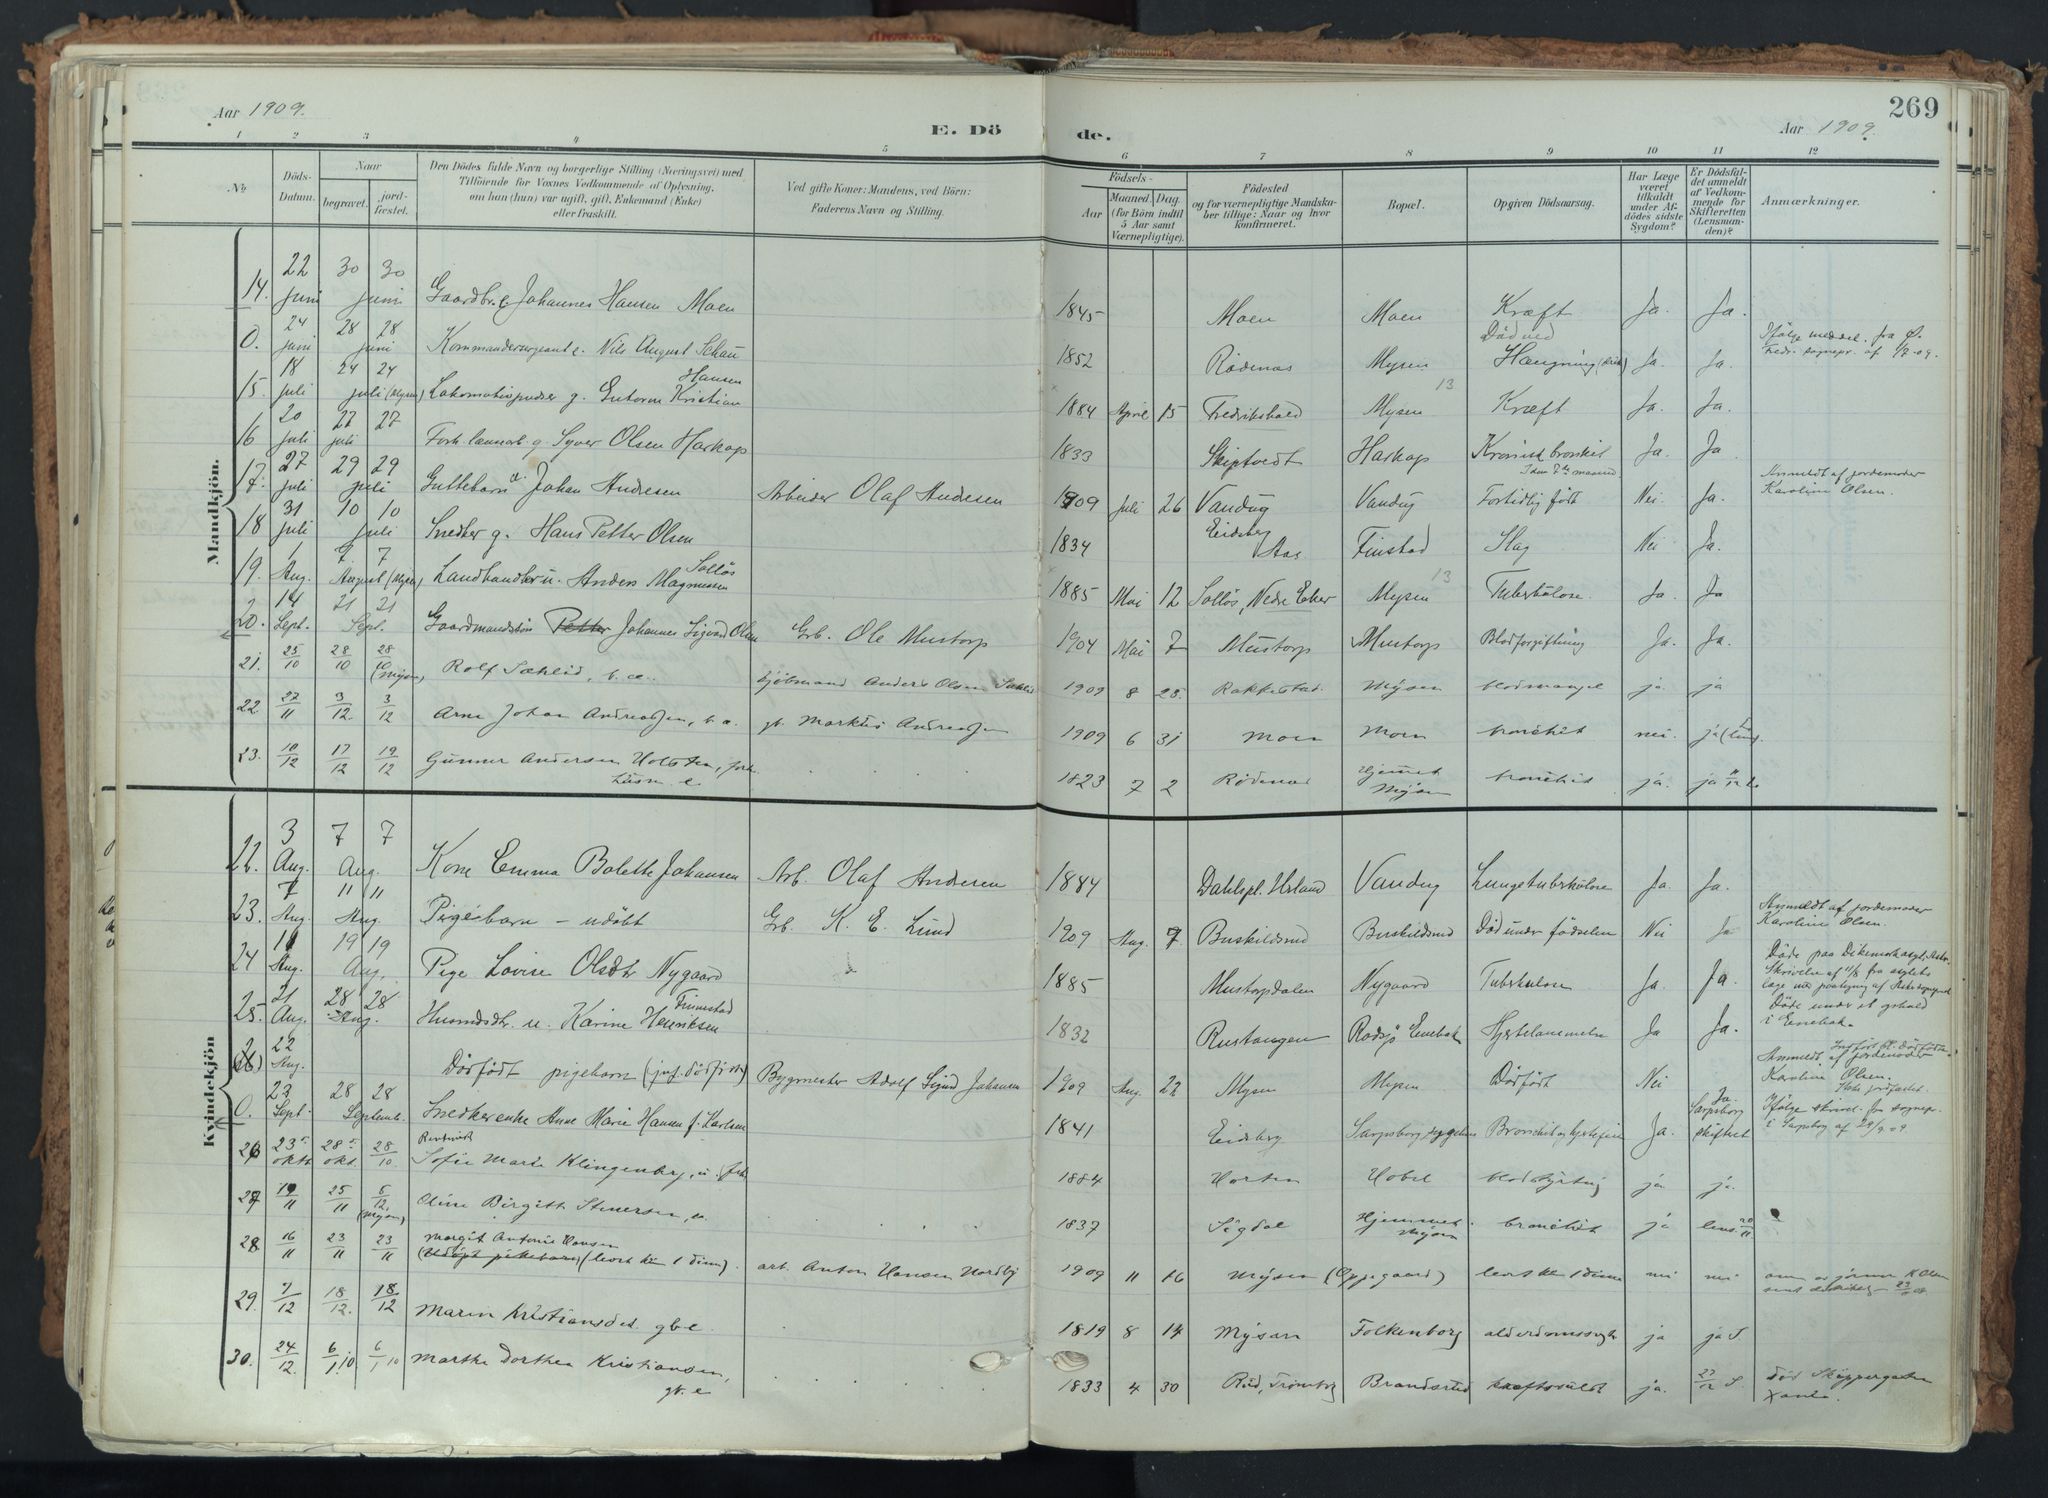 Aar 1909.
E. Dö
de.
Aar 1909.
269
1 2 3 4 5
6 7 8 9 10 11 12
No.
Döds-
Datum.
Naar
begravet.
jord-
fæstet.
Den Dödes fulde Navn og borgerlige Stilling (Næringsvei) med
Tilföiende for Voxnes Vedkommende af Oplysning,
om han (hun) var ugift, gift, Enkemand (Enke)
eller fraskilt.
Ved gifte Koner: Mandens, ved Börn:
Faderens Navn og Stilling.
Födsels-
Aar
Maaned. Dag.
(for Börn indtil
5 Aar samt
Værnepligtige).
Födested
og for værnepligtige Mandska-
ber tillige: Naar og hvor
konfirmeret.
Bopæl.
Opgiven Dödsaarsag.
Har Læge
været
tilkaldt
under Af-
dödes sidste
Sygdom?
Er Dödsfal-
det anmeldt
af Vedkom-
mende for
Skifteretten
(Lensman-
den)?
Anmærkninger.
Mandkjön.
14. 22 juni 30 30 juni Gaardbr. e. Johannes Hansen Moen 1845 Moen Moen Kræft Ja. Ja.
0. 24 juni 28 28 juni Kommandersergeant e. Nils August Schau 1852 Rödenæs Mysen Död ved Hængning Ja. Ja Ifölge meddel. fra
Fredr. sognepr. af
15. 18 juli 24 24 juli (Mysen) Lokomotivpudser g. Kristian Hansen 1884 April 15 Fredrikshald Mysen 13 Kræft Ja. Ja.
16 20 juli 27 27 juli g. Syver Olsen Harkop 1833 Skiptvedt Harkop Kronisk bronkit Ja. Ja
17. 27 juli 29 29 juli Guttebarn Johan Andresen Arbeider Olaf Andresen 1909 Juli 26 Vandug Vandug Fortidlig födt Nei Ja. Anmeldt af jordemoder
Karoline Olsen.
18 31 juli 10 10 juli Snedker g. Hans Petter Olsen 1834 Eidsberg Aas Finstad Slag Nei Ja.
19. 1 Aug. 7. 7 August (Mysen) Landhandler u. Anders Magnussen Solløs 1885 Mai 12 Solløs, Nedre Eker Mysen 13 Tuberkulose. Ja. Ja
20. 14 Sept. 21 21 Sept. Gaardmandssön Petter Johannes Sigvad Olsen Grb. Ole Mustorp 1904 Mai 7 Mustorp Mustorp Blodforgiftning Ja. Ja.
21. 25/10 28/10 28/10 (Mysen) Rolf Sæhlid, Kjöbmand Anders Olsen Sæhlid 1909 8 25. Rakkestad. Mysen blodmangel ja ja
22. 27/11 3/12. 3/12 Arne Johan Andreassen, gb. Markus Andreassen 1909 6 31 Moen Moen bronchit nei. ja
23. 10/12 17/12 19/12 Gunner Andersen Holsten, forh. husm. e. 1823 7 2 Rödenæs Hjemmet Mysen bronchit ja. ja
Kvindekjön
22. 3 Aug. 7 7 Aug. Kone Emma Bolette Johansen Arb. Olaf Andresen 1884 Vandug Lungetuberkulose Ja. Ja.
23. 7 Aug. 11 11 Aug. Pigebarn - udöbt Grb. K. E. Lund 1909 Aug. 7 Buskildsrud Buskildsrud Död under födselen Nei Ja Anmeldt af jordemoder
Karoline Olsen.
24 Aug. 19 19 Aug. Pige Lovise Olsdtr Nygaard 1885 Mustorpdalen Nygaard Tuberkulose Ja. Ja. Döde paa Dikemark asyl,
Skrivelse af 11/8 fra asylets
25. 21 Aug. 28 28 Aug. u. Karine Henriksen Finnestad 1832 Rustangen Enebak Hjertelammelse Ja Ja. Döde under et ophold
i Enebak.
22 Aug. Dödfödt pigebarn Bygmester Adolf Johansen 1909 Aug. 22 Mysen Mysen Dödfödt Nei Anmeldt af jordemoder
Karoline Olsen.
0. 23 Sept. 28 28 Septemb. Snedkerenke Anne Marie Hansen f. Karlsen 1841 Eidsberg Sarpsborg Bronchit Ja. Ja. Sarpsborg skifteret Ifölge skrivel. fra sognepr.
i Sarpsborg af 29/9.09
26 23 okt. 28 okt. 28/10 Sofie Marie Klingenberg, u. 1884 Horten Hobøl blodstyrtning ja. ja.
27 19/11 25/11 6/12. (Mysen) Oline Birgitte Stenersen, u. 1837 Sigdal Hjemmet Mysen bronchit ja lens 20/11
28. 16/11 23/11 23/11 Margit Antonie Hansen
(Udöpt pikebarn) (levet kun 1 dim) arb. Anton Hansen Nordby 1909 11 16 Mysen (Oppegaard) levet kun 1 dime
29. 7/12 18/12. 18/12 Maren Kristiansdat. gbe. 1819 8 14 Mysen Folkenborg alderdomssvaghet ja ja
30. 24/12. 6/1.10 6/1 10 Marthe Dorthea Kristiansen, gb. e 1833 4 30 Rud, Trömborg Brandsrud kræftsvulst ja. död